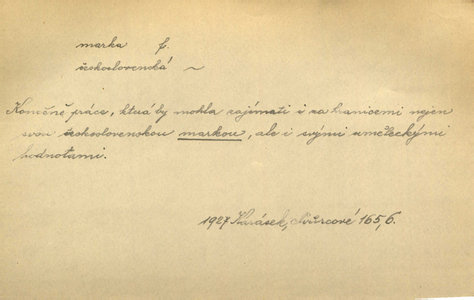 marka f.
československá ~
Konečně práce, která by mohla zajímati i za hranicemi nejen
svou československou markou, ale i svými uměleckými
hodnotami.
1927 Karásek, Tvůrcové 165,6.